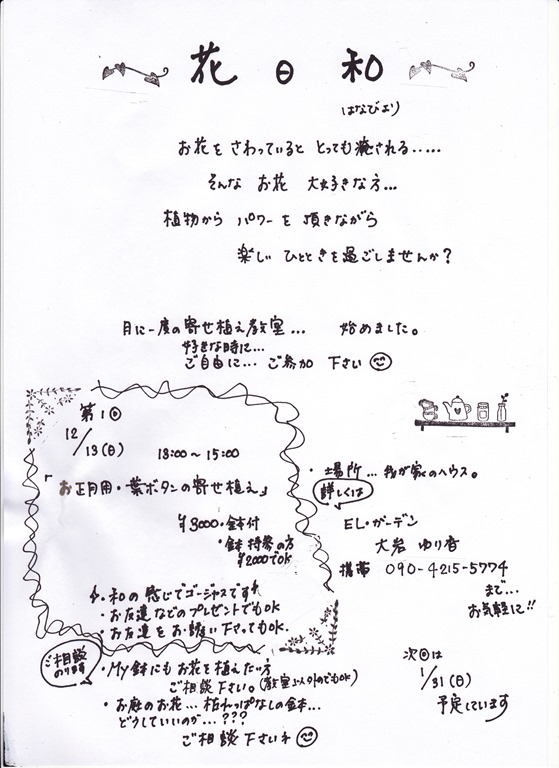 花日和
はなびより
お花を さわっていると とっても癒される.....
そんな お花 大好きな方...
植物から パワーを 頂きながら
楽しい ひとときを過ごしませんか?
月に一度の寄せ植え教室... 始めました。
好きな時に...
ご自由に... ご参加 下さい
第1回
12/13(日) 13:00~15:00
「お正月用・葉ボタンの寄せ植え」
¥3000・鉢付
・鉢持参の方
¥2000でOK
・和の感じでゴージャスです
・お友達などのプレゼントでもOK
・お友達をお誘い下さってもOK.
・場所...我が家のハウス。
詳しくは
EL・ガーデン
大岩 ゆり香
携帯 090-4215-5774
まで...
お気軽に!!
ご相談のります
・My鉢にもお花を植えたい方
ご相談下さい。(教室以外のでもOK)
・お庭のお花...枯れっぱなしの鉢...
どうしていいのか...???
ご相談 下さいネ
次回は
1/31(日)
予定しています